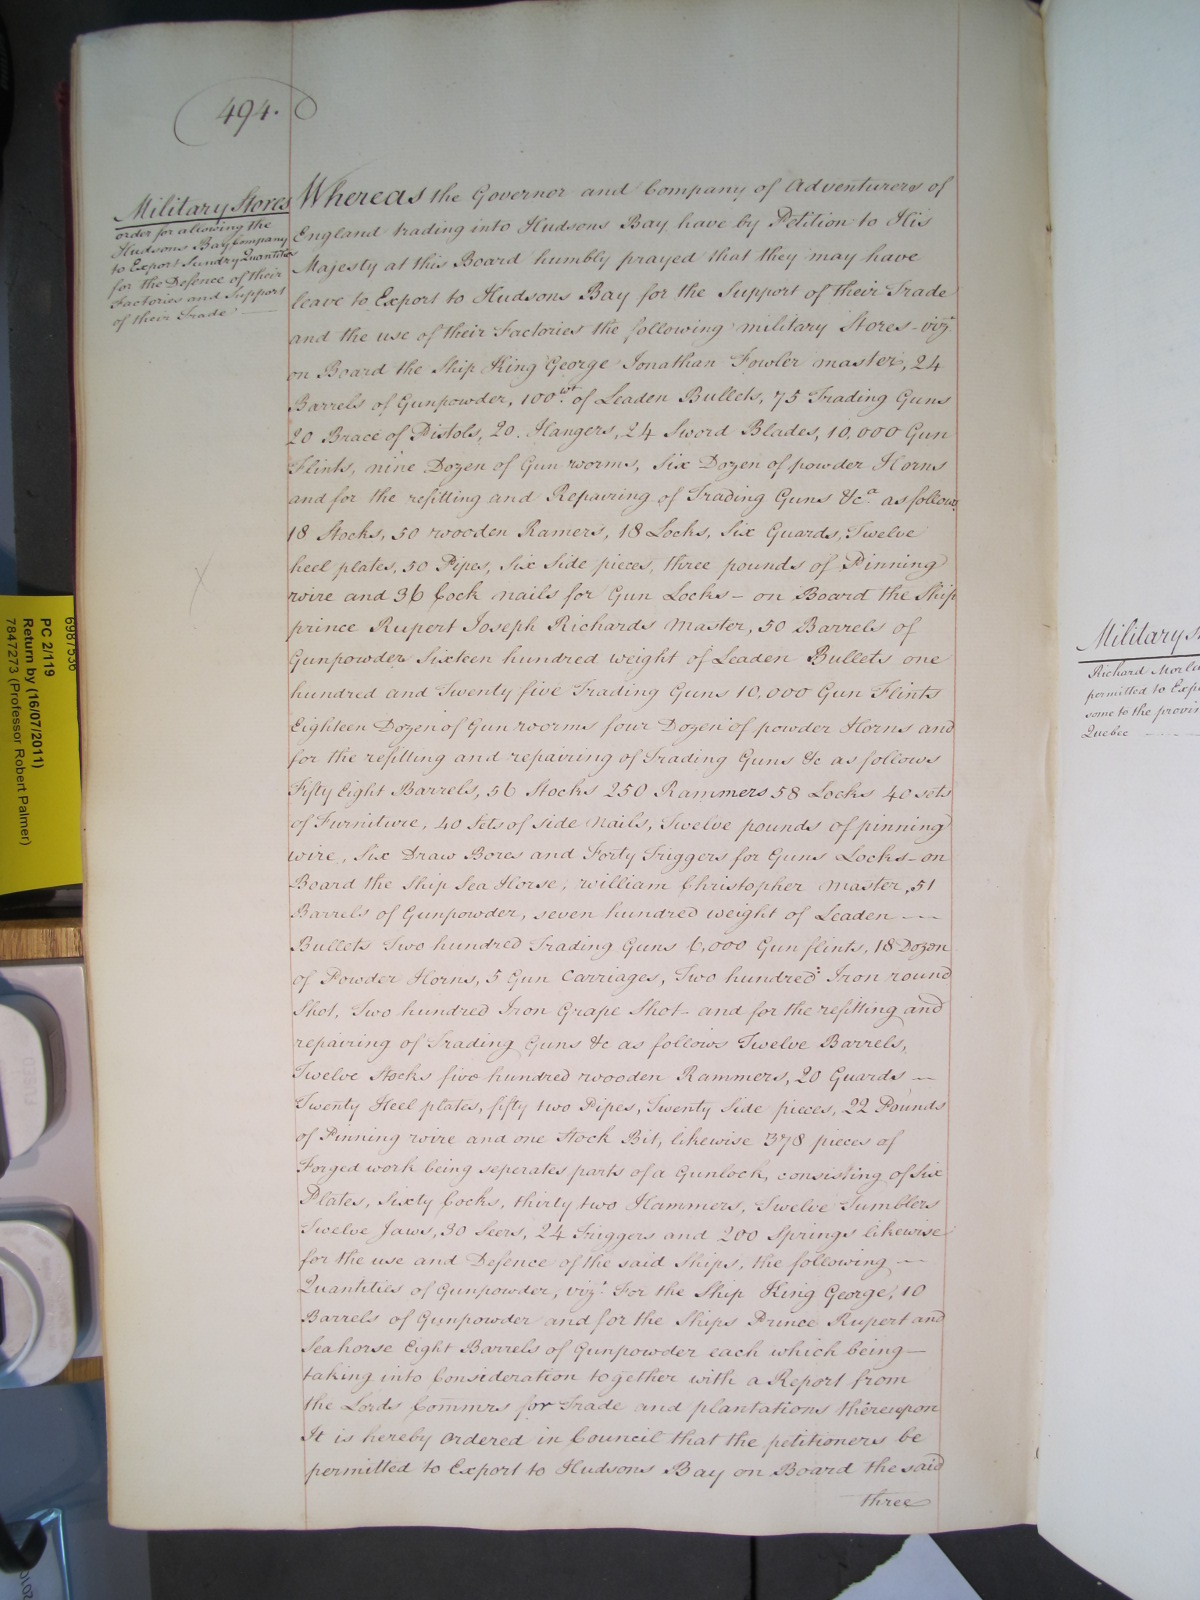 494.
Military Stores
order for allowing the
Hudsons Bay Company
to Export Sundry Quantities
for the Defence of their
Factories and Support
of their Trade
Whereas the Governor and Company of Adventurers of
England trading into Hudsons Bay have by Petition to His
Majesty at this Board humbly prayed that they may have
leave to Export to Hudsons Bay for the Support of their Trade
and the use of their Factories the following military Stores - vizt.
on Board the Ship King George Jonathan Fowler master, 24
Barrels of Gunpowder, 100wt. of Leaden Bullets, 75 Trading Guns
20 Brace of Pistols, 20. Hangers, 24 Sword Blades, 10,000 Gun
Flints, nine Dozen of Gun worms, Six Dozen of powder Horns
and for the refitting and Repairing of Trading Guns &ca. as follows
18 Stocks, 50 wooden Ramers, 18 Locks, Six Guards, Twelve
heel plates, 50 Pipes, Six Side pieces, three pounds of Pinning
wire and 36 Cock nails for Gun Locks - on Board the Ship
prince Rupert Joseph Richards Master, 50 Barrels of
Gunpowder Sixteen hundred weight of Leaden Bullets one
hundred and Twenty five Trading Guns 10,000 Gun Flints
Eighteen Dozen of Gun worms four Dozen of powder Horns and
for the refitting and repairing of Trading Guns &c as follows
Fifty Eight Barrels, 56 Stocks 250 Rammers 58 Locks 40 sets
of Furniture, 40 Sets of side Nails, Twelve pounds of pinning
wire, Six Draw Bores and Forty Triggers for Guns Locks - on
Board the Ship Sea Horse, william Christopher Master, 51
Barrels of Gunpowder, seven hundred weight of Leaden
Bullets Two hundred Trading Guns 6,000 Gun flints, 18 Dozen
of Powder Horns, 5 Gun Carriages, Two hundred Iron round
Shot, Two hundred Iron Grape Shot - and for the refitting and
repairing of Trading Guns &c as follows Twelve Barrels,
Twelve Stocks five hundred wooden Rammers, 20 Guards
Twenty Heel plates, fifty two Pipes, Twenty Side pieces, 22 Pounds
of Pinning wire and one Stock Bit, likewise 378 pieces of
Forged work being seperates parts of a Gunlock, consisting of Six
Plates, Sixty Cocks, thirty two Hammers, Twelve Tumblers
Twelve Jaws, 30 Seers, 24 Triggers and 200 Springs likewise
for the use and Defence of the said Ships, the following
Quantities of Gunpowder, vizt. For the Ship King George, 10
Barrels of Gunpowder and for the Ships Prince Rupert and
Seahorse Eight Barrels of Gunpowder each which being
taking into Consideration together with a Report from
the Lords Commrs for Trade and plantations thereupon
It is hereby Ordered in Council that the petitioners be
permitted to Export to Hudsons Bay on Board the said
three
6987536
PC 2/119
Return by (16/07/2011)
7847273 (Professor Robert Palmer)
Military
Richard
permitted to
some to the
Quebec